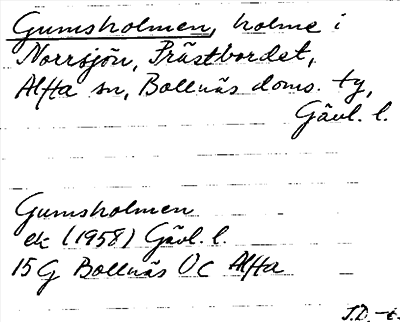 Gumsholmen, holme i
Norrsjön, Prästbordet,
Alfta sn, Bollnäs doms. ty,
Gävl. l.
Gumsholmen
ek (1958) Gävl. l.
15G Bollnäs Öc Alfta
J.D.-t.